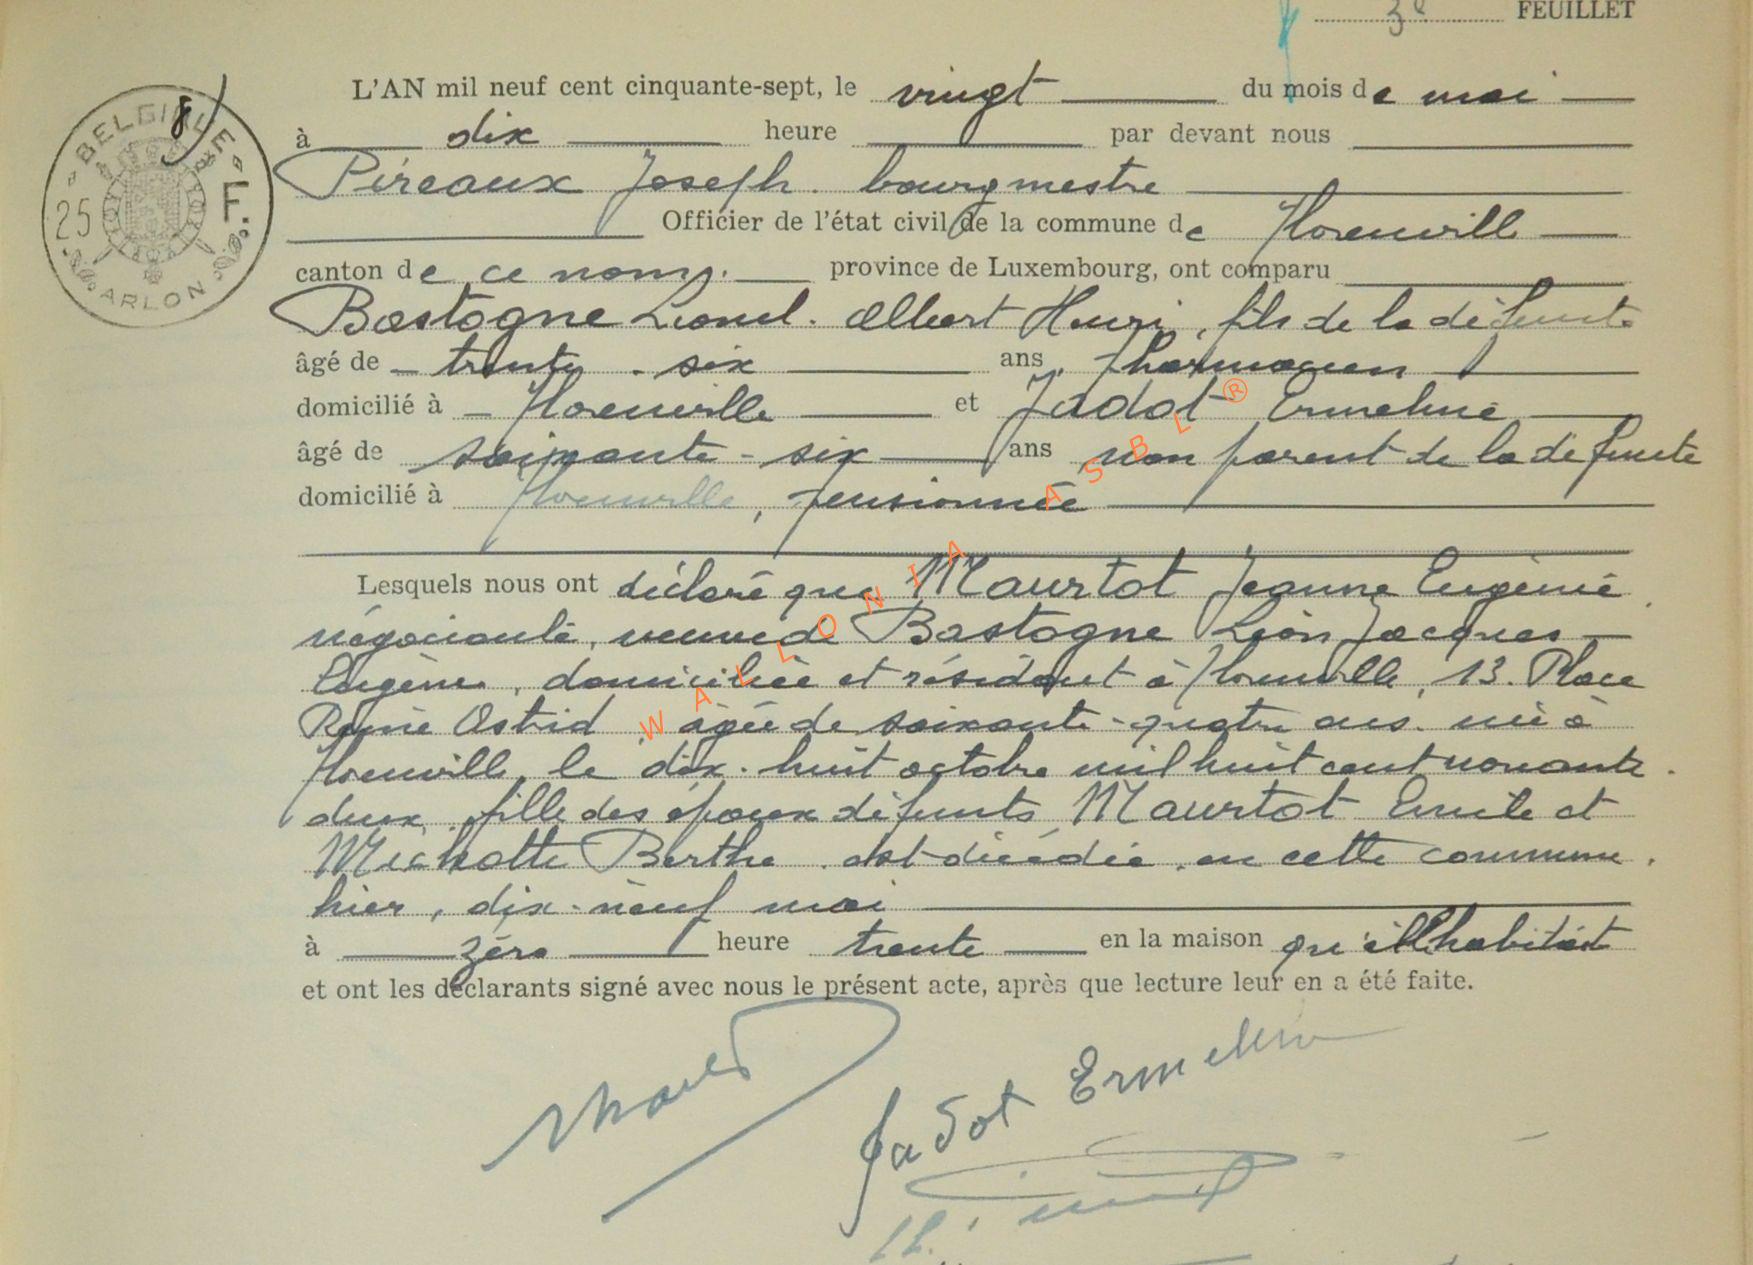 3e FEUILLET
8)
BELGIQUE
25 F.
ARLON
L'AN mil neuf cent cinquante-sept, le vingt du mois de mai
à dix heure par devant nous
Pireaux Joseph. bourgmestre
Officier de l'état civil de la commune de Florenville
canton de ce nom. province de Luxembourg, ont comparu
Bastogne Lionel. Albert Henri, fils de la défunte
âgé de trente-six ans, pharmacien
domicilié à Florenville et Jadot Ermeline
âgé de soixante-six ans non parent de la défunte
domicilié à Florenville, pensionnée
Lesquels nous ont déclaré que Maurtot Jeanne Eugénie
négociante, veuve de Bastogne Léon Jacques
Eugène, domiciliée et résidant à Florenville, 13. Place
Reine Astrid, âgée de soixante-quatre ans. née à
Florenville, le dix-huit octobre mil huit cent nonante-
deux, fille des époux défunts Maurtot Emile et
Michotte Berthe. est décédée, en cette commune,
hier, dix-neuf mai
à zéro heure trente en la maison qu'elle habitait
et ont les déclarants signé avec nous le présent acte, après que lecture leur en a été faite.
Jadot Ermeline
WALLONIA ASBL ®